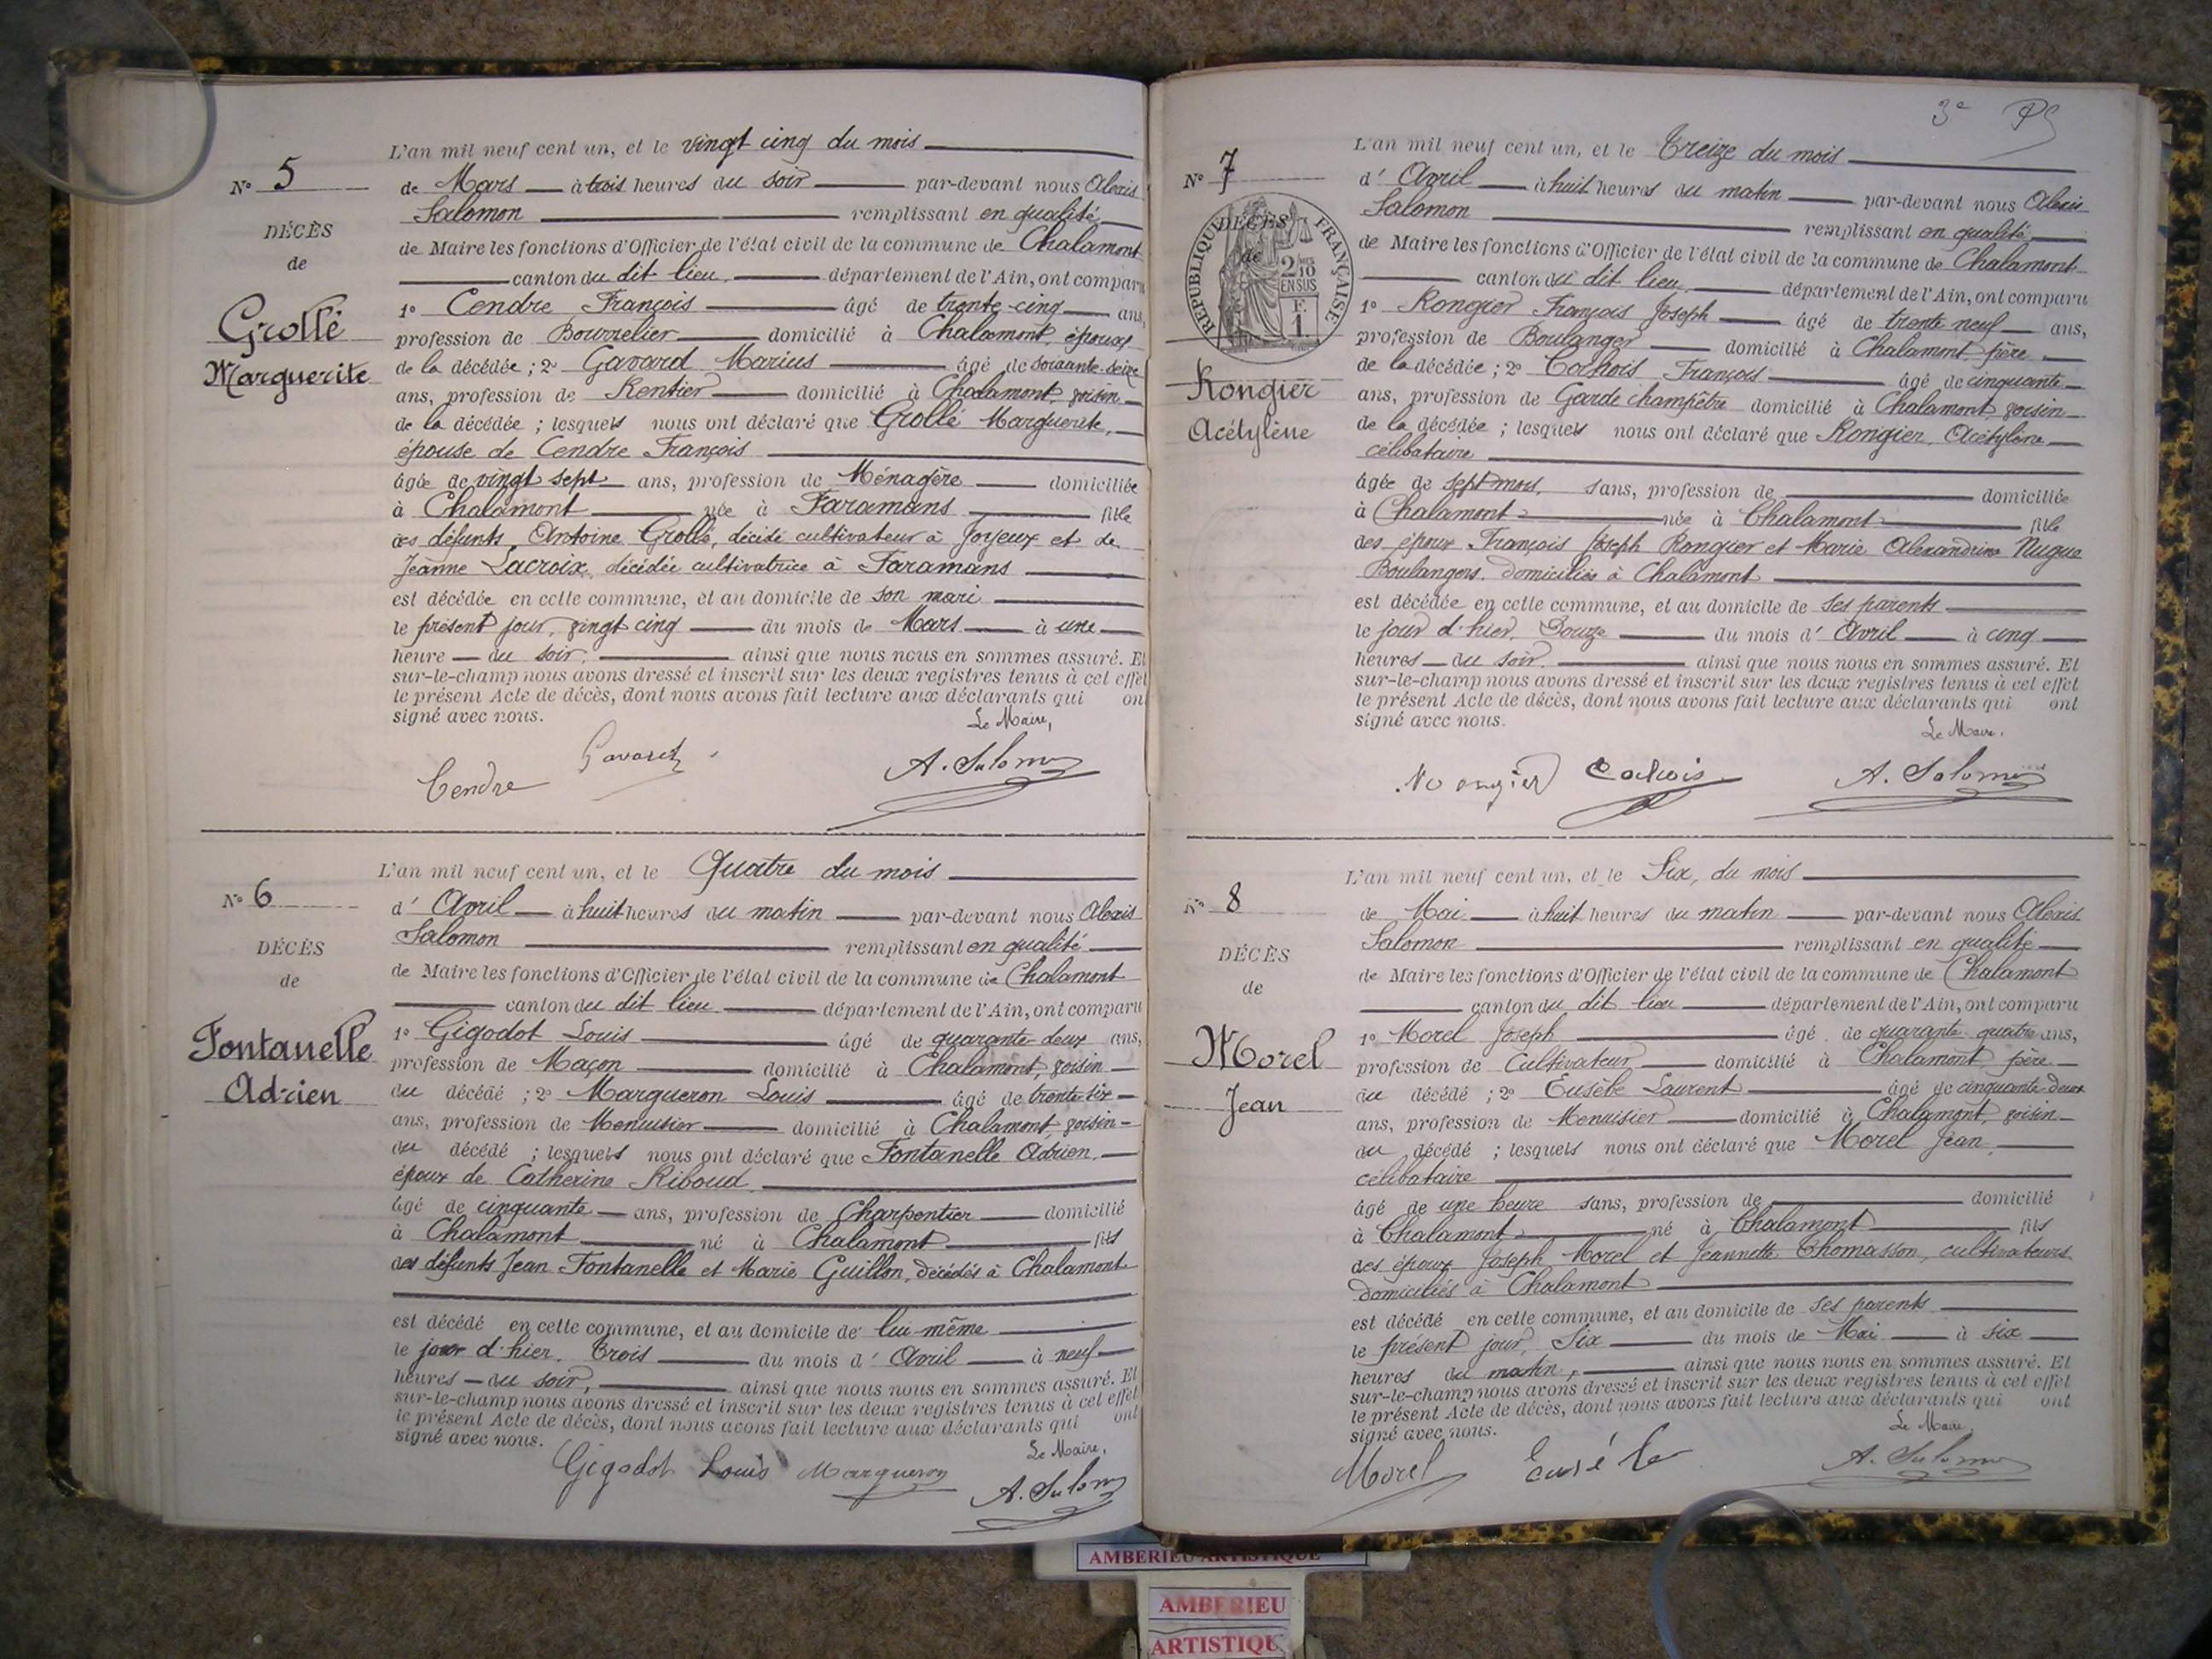 N° 5
DÉCÈS
de
Grollé
Marguerite
L'an mil neuf cent un, et le vingt cinq du mois
de Mars à trois heures du soir par-devant nous Alexis
Salomon remplissant en qualité
de Maire les fonctions d'Officier de l'état civil de la commune de Chalamont
canton du dit lieu département de l'Ain, ont comparu
1° Cendre François âgé de trente-cinq ans,
profession de Bourrelier domicilié à Chalamont, époux
de la décédée ; 2° Gavard Marius âgé de soixante-seize
ans, profession de Rentier domicilié à Chalamont, voisin
de la décédée ; lesquels nous ont déclaré que Grollé Marguerite,
épouse de Cendre François
âgée de vingt sept ans, profession de Ménagère domiciliée
à Chalamont née à Faramans fille
des défunts, Antoine Grollé, décédé cultivateur à Joyeux et de
Jeanne Lacroix, décédée cultivatrice à Faramans
est décédée en cette commune, et au domicile de son mari
le présent jour, vingt cinq du mois de Mars à une
heure du soir, ainsi que nous nous en sommes assuré. Et
sur-le-champ nous avons dressé et inscrit sur les deux registres tenus à cet effet
le présent Acte de décès, dont nous avons fait lecture aux déclarants qui ont
signé avec nous.
Le Maire,
Cendre Gavard A. Salomon
N° 6
DÉCÈS
de
Fontanelle
Adrien
L'an mil neuf cent un, et le Quatre du mois
d' Avril à huit heures du matin par-devant nous Alexis
Salomon remplissant en qualité
de Maire les fonctions d'Officier de l'état civil de la commune de Chalamont
canton du dit lieu département de l'Ain, ont comparu
1° Gigodot Louis âgé de quarante-deux ans,
profession de Maçon domicilié à Chalamont, voisin
du décédé ; 2° Margueron Louis âgé de trente-six
ans, profession de Menuisier domicilié à Chalamont, voisin
du décédé ; lesquels nous ont déclaré que Fontanelle Adrien,
époux de Catherine Riboud
âgé de cinquante ans, profession de Charpentier domicilié
à Chalamont né à Chalamont fils
des défunts Jean Fontanelle et Marie Guillon, décédés à Chalamont
est décédé en cette commune, et au domicile de lui-même
le jour d'hier, Trois du mois d' Avril à neuf
heures du soir, ainsi que nous nous en sommes assuré. Et
sur-le-champ nous avons dressé et inscrit sur les deux registres tenus à cet effet
le présent Acte de décès, dont nous avons fait lecture aux déclarants qui ont
signé avec nous.
Le Maire,
Gigodot Louis Margueron A. Salomon
3e
N° 7
DÉCÈS
de
RÉPUBLIQUE FRANÇAISE
2/10 EN SUS
F.
1.
Rongier
Acétylène
L'an mil neuf cent un, et le Treize du mois
d' Avril à huit heures du matin par-devant nous Alexis
Salomon remplissant en qualité
de Maire les fonctions d'Officier de l'état civil de la commune de Chalamont
canton du dit lieu département de l'Ain, ont comparu
1° Rongier François Joseph âgé de trente neuf ans,
profession de Boulanger domicilié à Chalamont, père
de la décédée ; 2° Cachois François âgé de cinquante
ans, profession de Garde champêtre domicilié à Chalamont, voisin
de la décédée ; lesquels nous ont déclaré que Rongier Acétylène
célibataire
âgée de sept mois, sans, profession de domiciliée
à Chalamont née à Chalamont fille
des époux François Joseph Rongier et Marie Alexandrine Nugue
Boulangers, domiciliés à Chalamont
est décédée en cette commune, et au domicile de ses parents
le jour d'hier, Douze du mois d' Avril à cinq
heures du soir, ainsi que nous nous en sommes assuré. Et
sur-le-champ nous avons dressé et inscrit sur les deux registres tenus à cet effet
le présent Acte de décès, dont nous avons fait lecture aux déclarants qui ont
signé avec nous.
Le Maire,
Rongier Cachois A. Salomon
N° 8
DÉCÈS
de
Morel
Jean
L'an mil neuf cent un, et le Six, du mois
de Mai à huit heures du matin par-devant nous Alexis
Salomon remplissant en qualité
de Maire les fonctions d'Officier de l'état civil de la commune de Chalamont
canton du dit lieu département de l'Ain, ont comparu
1° Morel Joseph âgé de quarante-quatre ans,
profession de Cultivateur domicilié à Chalamont, père
du décédé ; 2° Eusèbe Laurent âgé de cinquante-deux
ans, profession de Menuisier domicilié à Chalamont, voisin
du décédé ; lesquels nous ont déclaré que Morel Jean,
célibataire
âgé de une heure sans, profession de domicilié
à Chalamont né à Chalamont fils
des époux Joseph Morel et Jeannette Thomasson, cultivateurs
domiciliés à Chalamont
est décédé en cette commune, et au domicile de ses parents
le présent jour, Six du mois de Mai à six
heures du matin, ainsi que nous nous en sommes assuré. Et
sur-le-champ nous avons dressé et inscrit sur les deux registres tenus à cet effet
le présent Acte de décès, dont nous avons fait lecture aux déclarants qui ont
signé avec nous.
Le Maire,
Morel Eusèbe A. Salomon
AMBERIEU ARTISTIQUE
AMBERIEU
ARTISTIQU